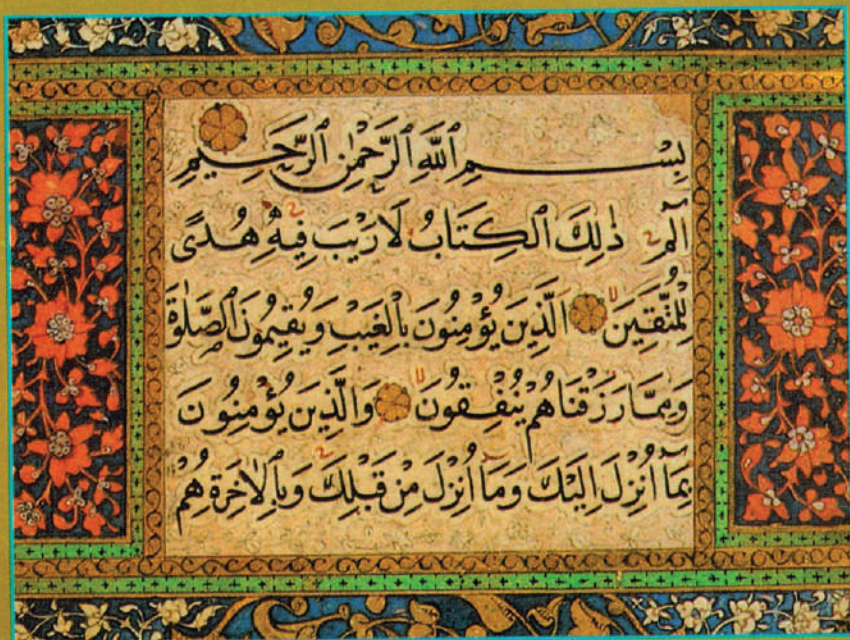 بِسْمِ ٱللَّهِ ٱلرَّحْمٰنِ ٱلرَّحِيمِ
الٓمٓ ذٰلِكَ ٱلْكِتَابُ لَا رَيْبَ فِيهِ هُدًى
لِلْمُتَّقِينَ ٱلَّذِينَ يُؤْمِنُونَ بِٱلْغَيْبِ وَيُقِيمُونَ ٱلصَّلٰوةَ
وَمِمَّا رَزَقْنَاهُمْ يُنْفِقُونَ وَالَّذِينَ يُؤْمِنُونَ
بِمَٓا اُنْزِلَ اِلَيْكَ وَمَٓا اُنْزِلَ مِنْ قَبْلِكَ وَبِٱلْاٰخِرَةِ هُمْ